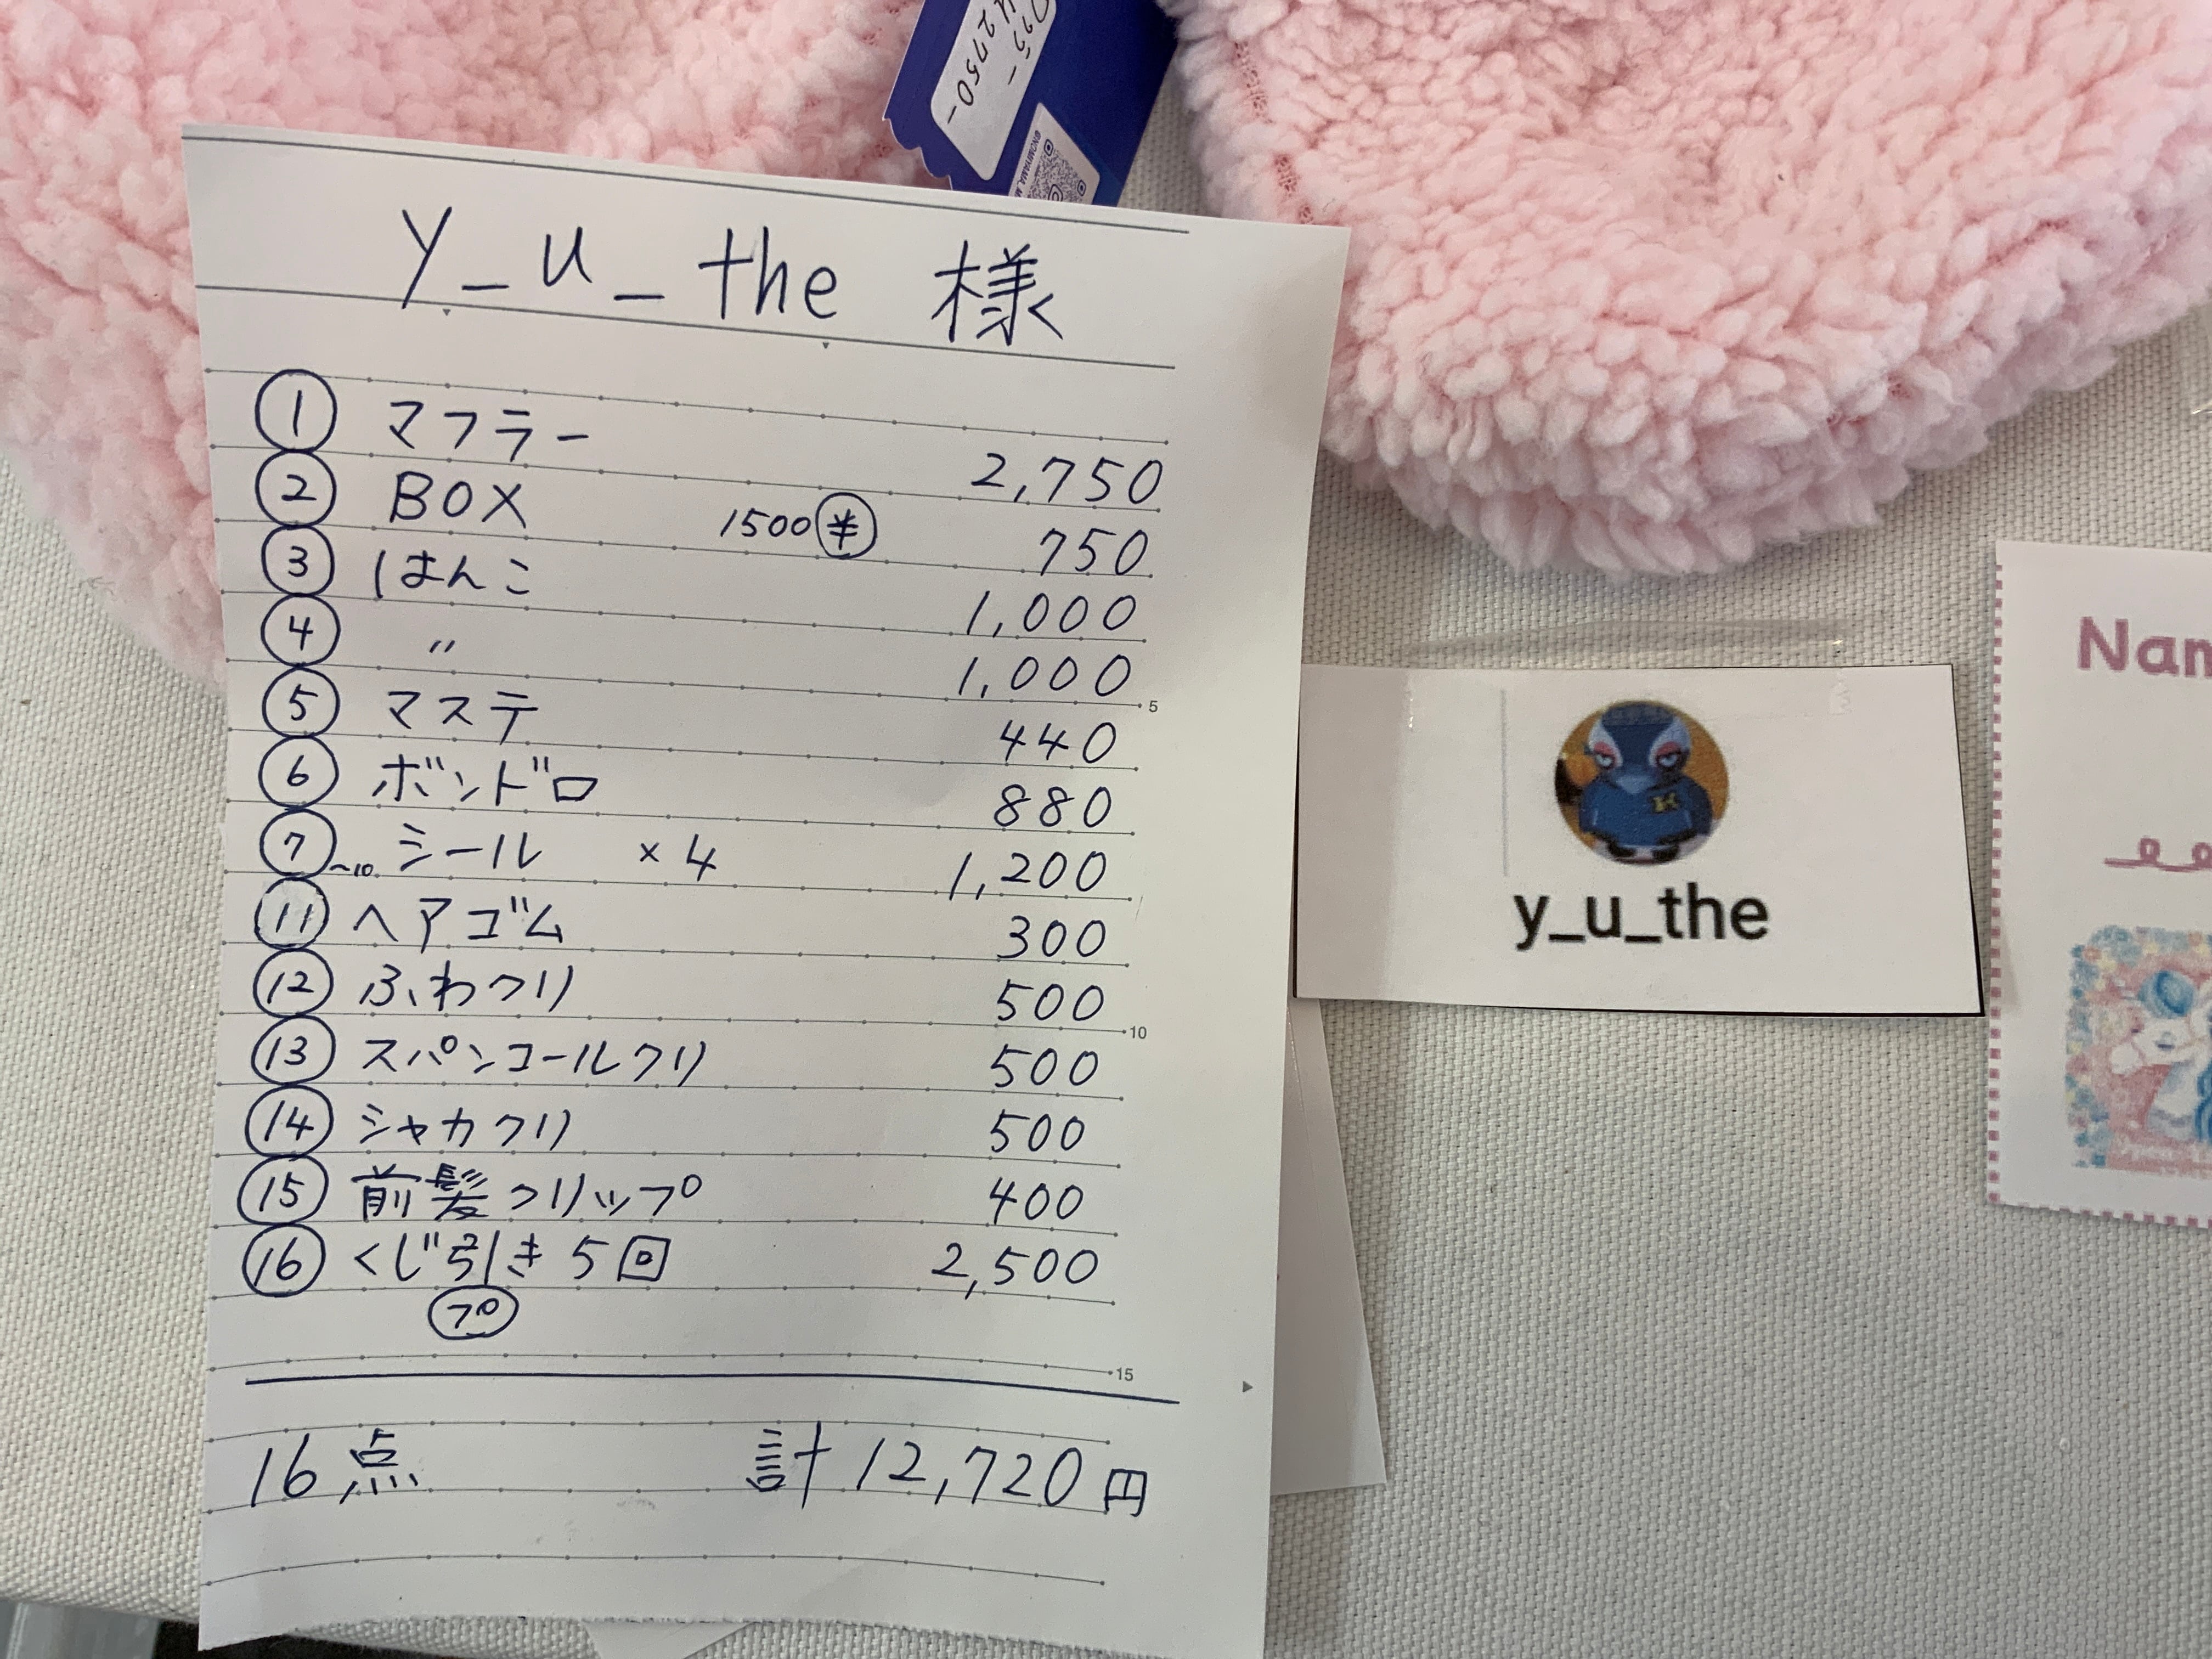 ¥2750-
y_u_the 様
① マフラー 2,750
② BOX 1500 半 750
③ はんこ 1,000
④ 〃 1,000
5
⑤ マステ 440
⑥ ボンドロ 880
⑦~10 シール ×4 1,200
⑪ ヘアゴム 300
⑫ ふわクリ 500
10
⑬ スパンコールクリ 500
⑭ シャカクリ 500
⑮ 前髪クリップ 400
⑯ くじ引き 5回 2,500
プ
15
16点 計 12,720円
y_u_the
Nam